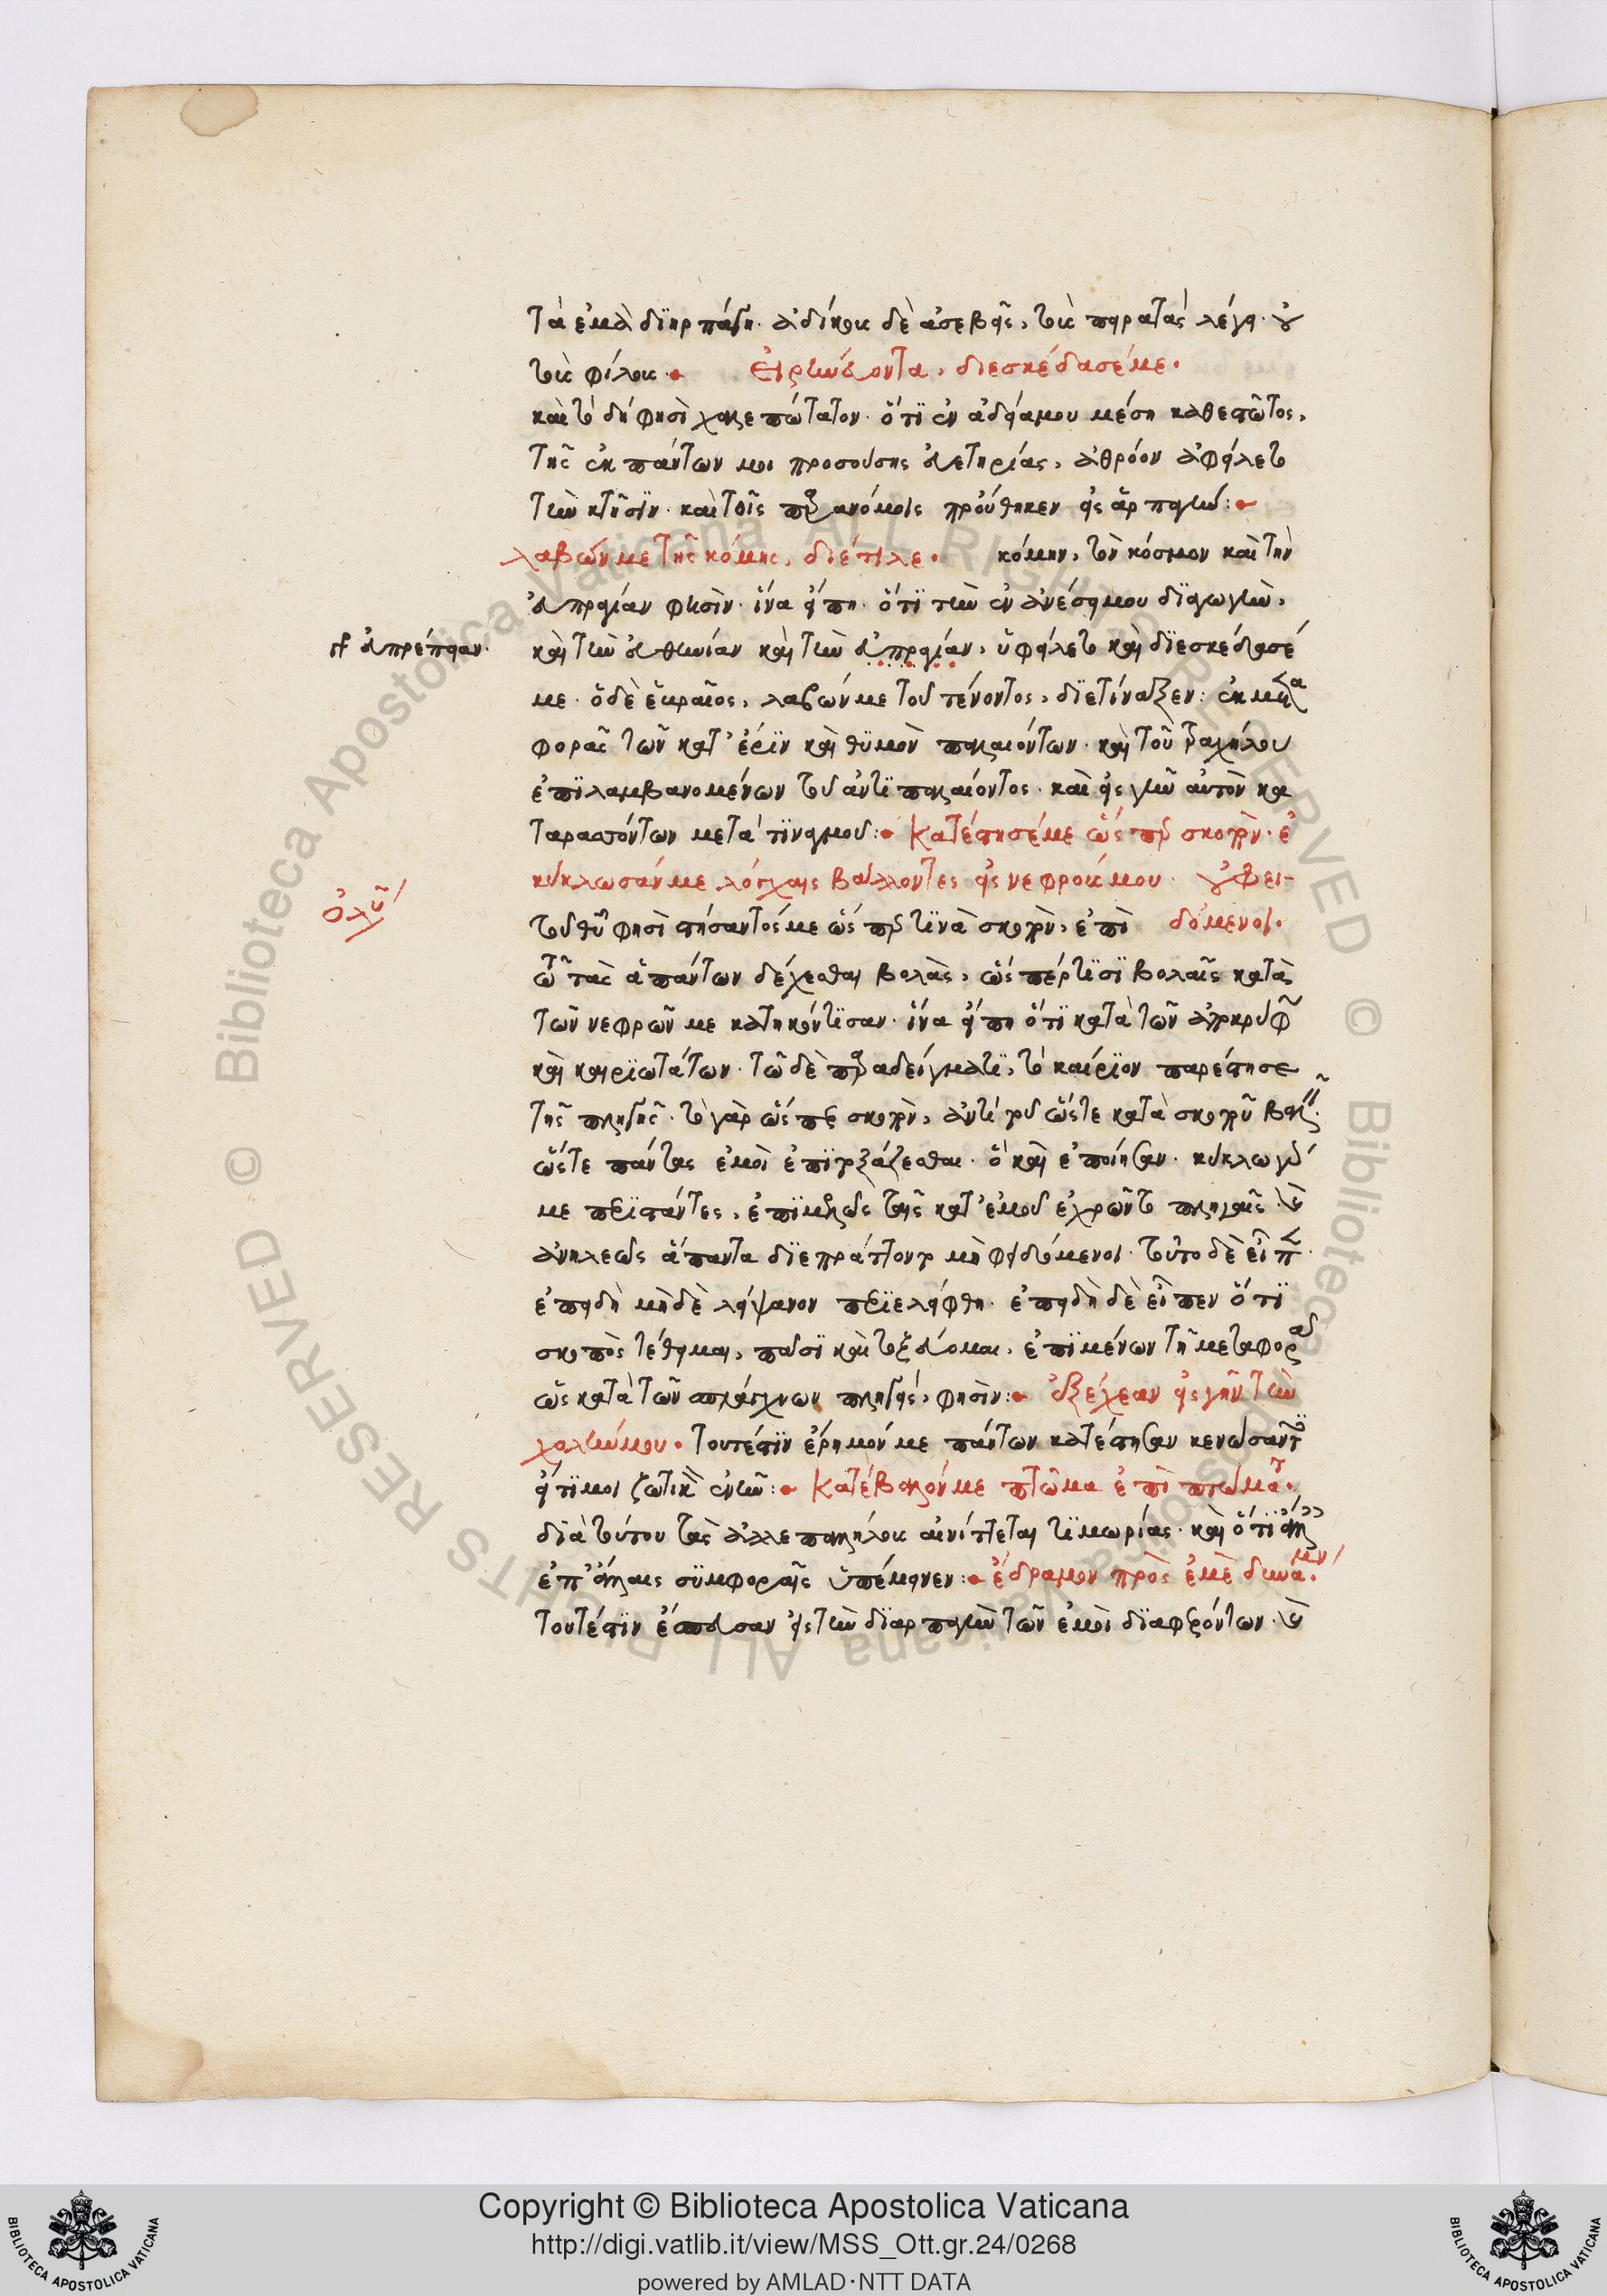 τὰ ἐμὰ διηρπάγη· ἀδίκους δὲ ἀσεβεῖς, τοὺς πειρατάς λέγει· οὐ
τοὺς φίλους· Εἰρηνεύοντα, διεσκέδασέ με·
καὶ τὸ δή φησὶ χαλεπώτατον· ὅτι ἐν ἀδείᾳ μου μέσῃ καθεστῶτος,
τῆς ἐκ πάντων μοι προσούσης εὐετηρίας, ἀθρόον ἀφείλετο
τὴν κτῆσιν· καὶ τοῖς παρανόμοις προύθηκεν εἰς ἁρπαγήν:
λαβών με τῆς κόμης, διέτιλε· κόμην, τὸν κόσμον καὶ τὴν
εὐπραγίαν φησὶν· ἵνα εἴπῃ· ὅτι τὴν ἐν ἀνέσει μου διαγωγὴν,
γρ εὐπρέπειαν·
καὶ τὴν εὐθηνίαν καὶ τὴν εὐπραγίαν, ὑφείλετο καὶ διεσκέδασέ
με· ὁ δὲ ἑβραῖος, λαβών με τοῦ τένοντος, διετίναξεν: ἐκ μετα
φορᾶς τῶν κατ' ἔριν καὶ θυμὸν παλαιόντων· καὶ τοῦ τραχήλου
ἐπιλαμβανομένων τοῦ ἀντιπαλαίοντος· καὶ εἰς γῆν αὐτὸν κα
ταρασσόντων μετὰ τιναγμοῦ: Κατέστησέ με ὥσπερ σκοπὸν· ἐ
κύκλωσάν με λόγχαις βάλλοντες εἰς νεφρούς μου· οὐ φει-
ὀλυμ
τοῦ θεοῦ φησὶ στήσαντός με ὥσπερ τινὰ σκοπὸν, ἐπὶ δόμενοι·
τῷ τὰς ἁπάντων δέχεσθαι βολὰς, ὥσπέρ τισι βολαῖς κατὰ
τῶν νεφρῶν με κατηκόντισαν· ἵνα εἴπῃ ὅτι κατὰ τῶν ἀποκρύφων
καὶ καιριωτάτων· τῷ δὲ παραδείγματι, τὸ καίριον παρέστησε
τῆς πληγῆς· τὸ γὰρ ὥσπερ σκοπὸν, ἀντὶ τοῦ ὥστε κατὰ σκοποῦ βαλεῖν·
ὥστε πάντας ἐμοὶ ἐπιτοξάζεσθαι· ὃ καὶ ἐποίησαν· κύκλωθέν
με περιστάντες, ἐπιμελῶς ταῖς κατ' ἐμοῦ ἐχρῶντο πληγαῖς· καὶ
ἀνηλεῶς ἅπαντα διεπράττοντο μὴ φειδόμενοι· τοῦτο δὲ εἶπεν·
ἐπειδὴ μηδὲ λείψανον περιελείφθη· ἐπειδὴ δὲ εἶπεν ὅτι
σκοπὸς τέθειμαι, πᾶσι καὶ τοξεύομαι, ἐπιμένων τῇ μεταφορᾷ
ὡς κατὰ τῶν σπλάγχνων πληγείς, φησίν: ἐξέχεαν εἰς γῆν τὴν
χολήν μου· τουτέστιν ἔρημόν με πάντων κατέστησαν κενώσαντες
εἴ τί μοι ζωτικὸν ἐνῆν: Κατέβαλόν με πτῶμα ἐπὶ πτώματι·
διὰ τούτου τὰς ἀλλεπαλλήλους αἰνίττεται τιμωρίας· καὶ ὅτι ἄλλας
ἐπ' ἄλλαις συμφοραῖς ὑπέμεινεν: ἔδραμον πρὸς ἐμὲ δυνάμενοι·
τουτέστιν ἔσπευσαν εἰς τὴν διαρπαγὴν τῶν ἐμοὶ διαφερόντων· καὶ
Copyright © Biblioteca Apostolica Vaticana
http://digi.vatlib.it/view/MSS_Ott.gr.24/0268
powered by AMLAD·NTT DATA